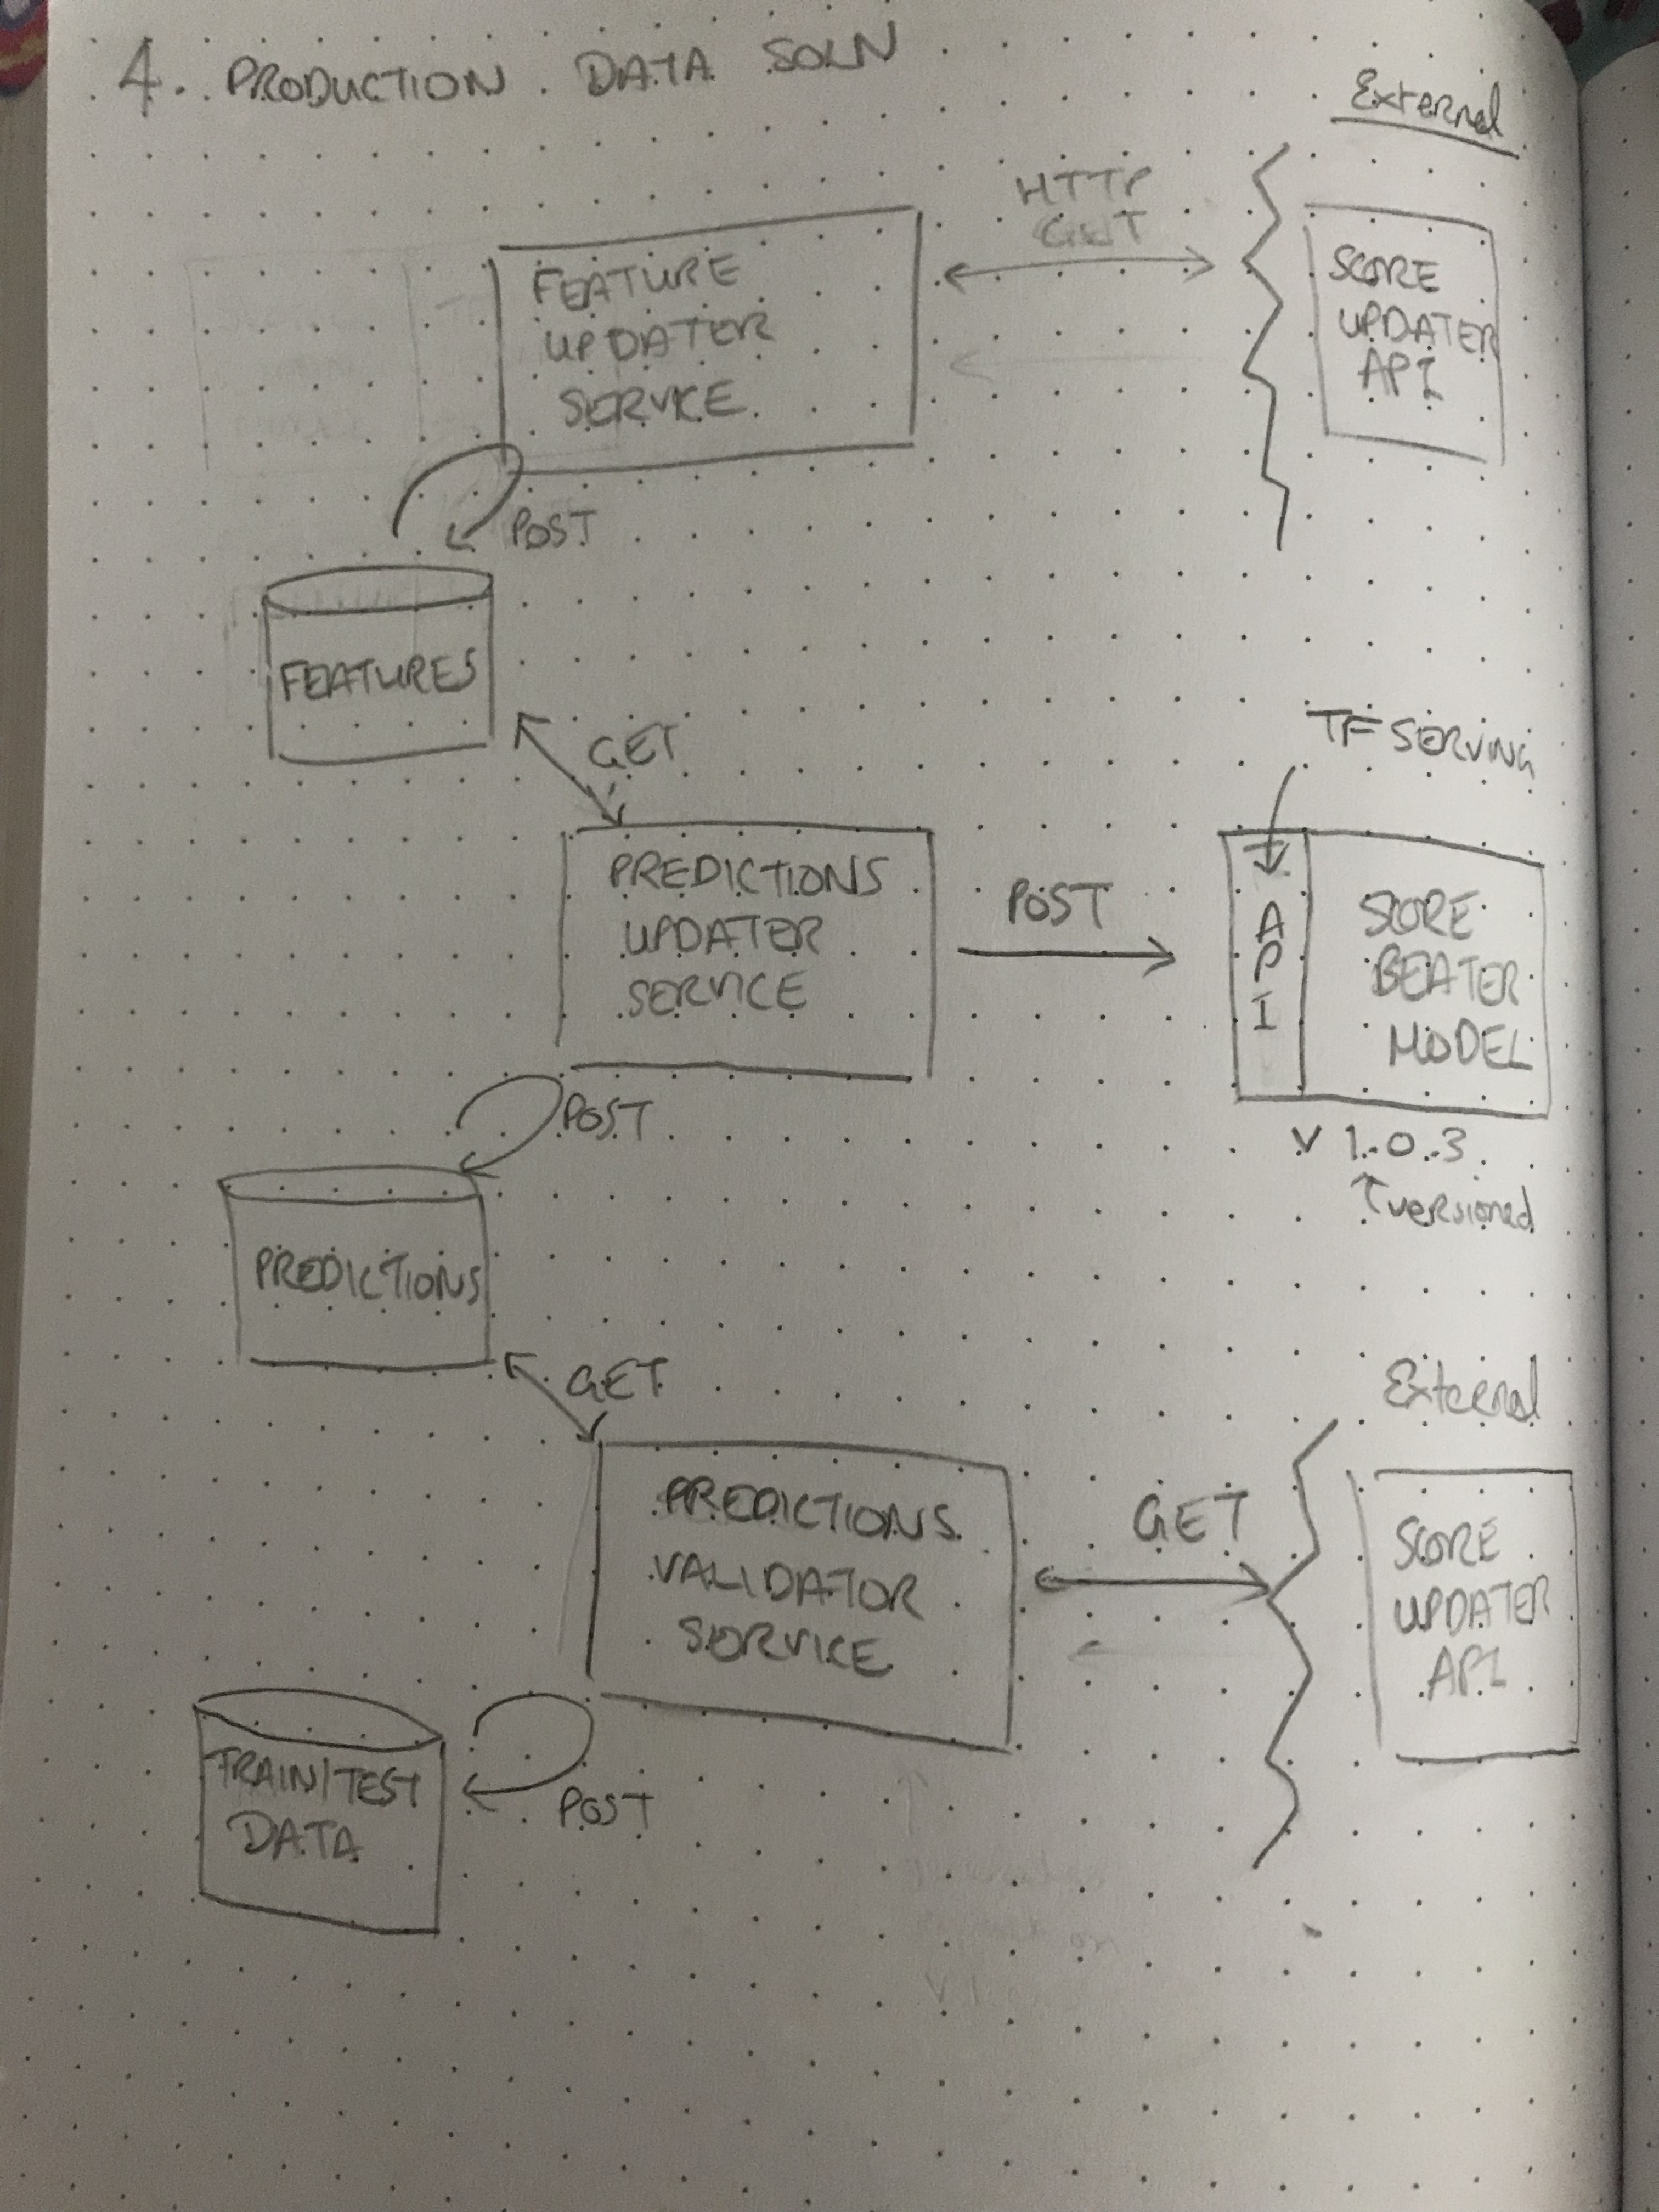 4. PRODUCTION DATA SOLN
External
HTTP
GET
FEATURE
UPDATER
SERVICE
SCORE
UPDATER
API
POST
FEATURES
GET
TF SERVING
PREDICTIONS
UPDATER
SERVICE
POST
API
SCORE
BEATER
MODEL
POST
V 1.0.3
versioned
PREDICTIONS
GET
External
PREDICTIONS
VALIDATOR
SERVICE
GET
SCORE
UPDATER
API
TRAIN/TEST
DATA
POST